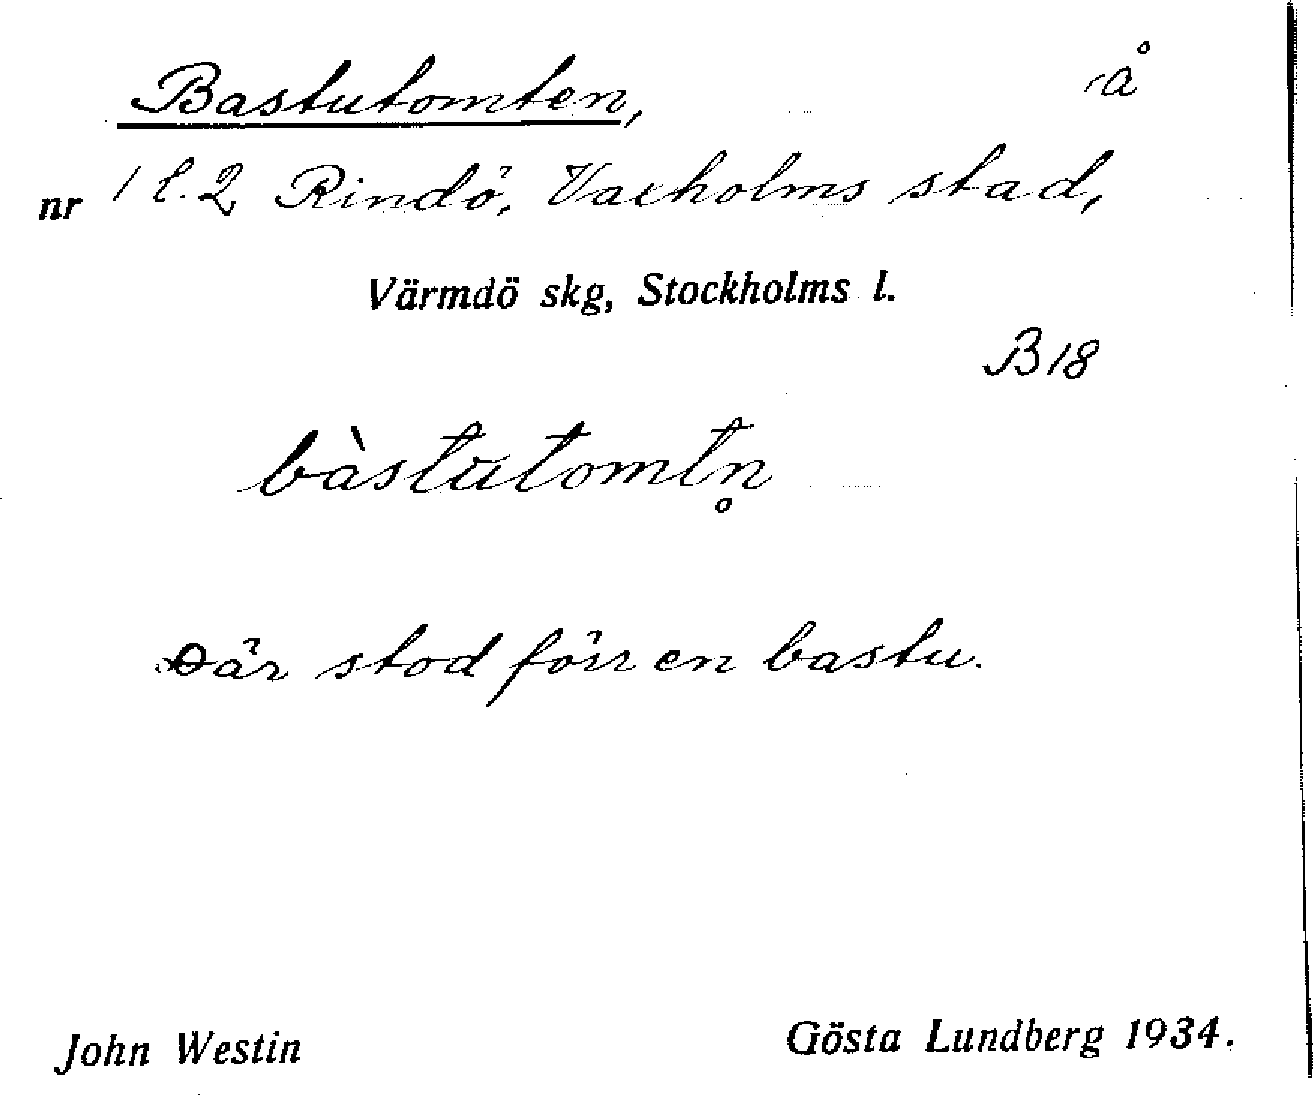 Bastutomten, å
nr 1 l. 2 Rindö, Vaxholms stad,
Värmdö skg, Stockholms l.
B 18
bàstutomtn̥
Där stod förr en bastu.
John Westin Gösta Lundberg 1934.